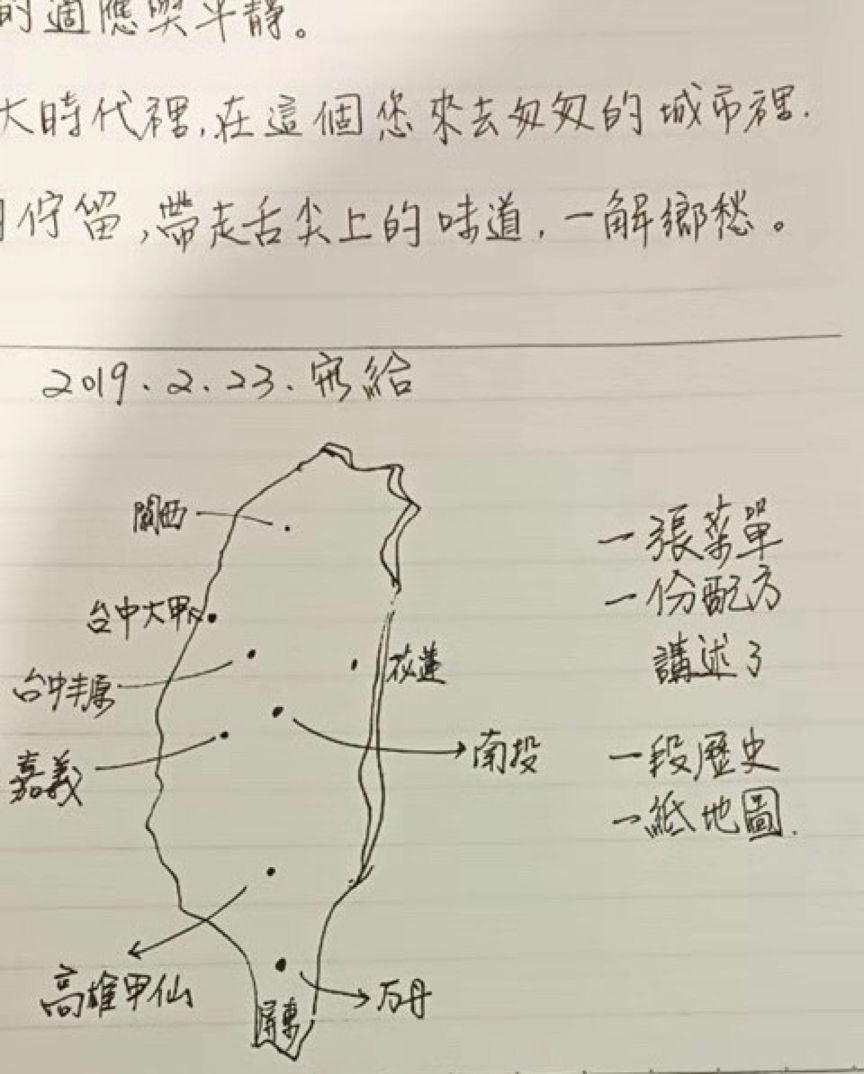 的適應與平靜。
大時代裡,在這個您來去匆匆的城市裡.
佇留,帶走舌尖上的味道,一解鄉愁。
2019.2.23.
給
關西
台中大甲
台中丰原
嘉義
花蓮
南投
高雄甲仙
万丹
屏東
一張菜單
一份配方
講述了
一段歷史
一紙地圖.